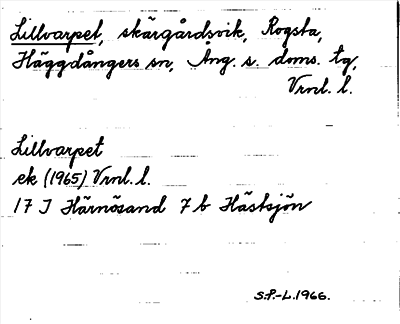 Lillvarpet, skärgårdsvik, Rogsta,
Häggdångers sn, Ång. s. doms. tg,
Vrnl. l.
Lillvarpet
ek (1965) Vrnl. l.
17 J Härnösand 7 b Hästsjön
S.P.-L.1966.